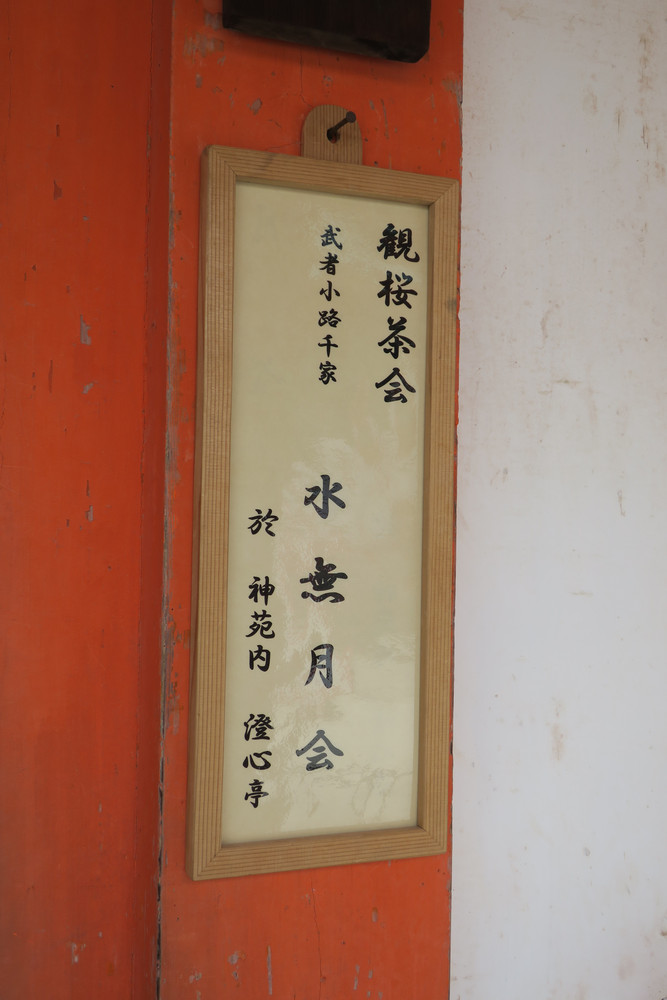 観桜茶会
武者小路千家
水無月会
於 神苑内 澄心亭